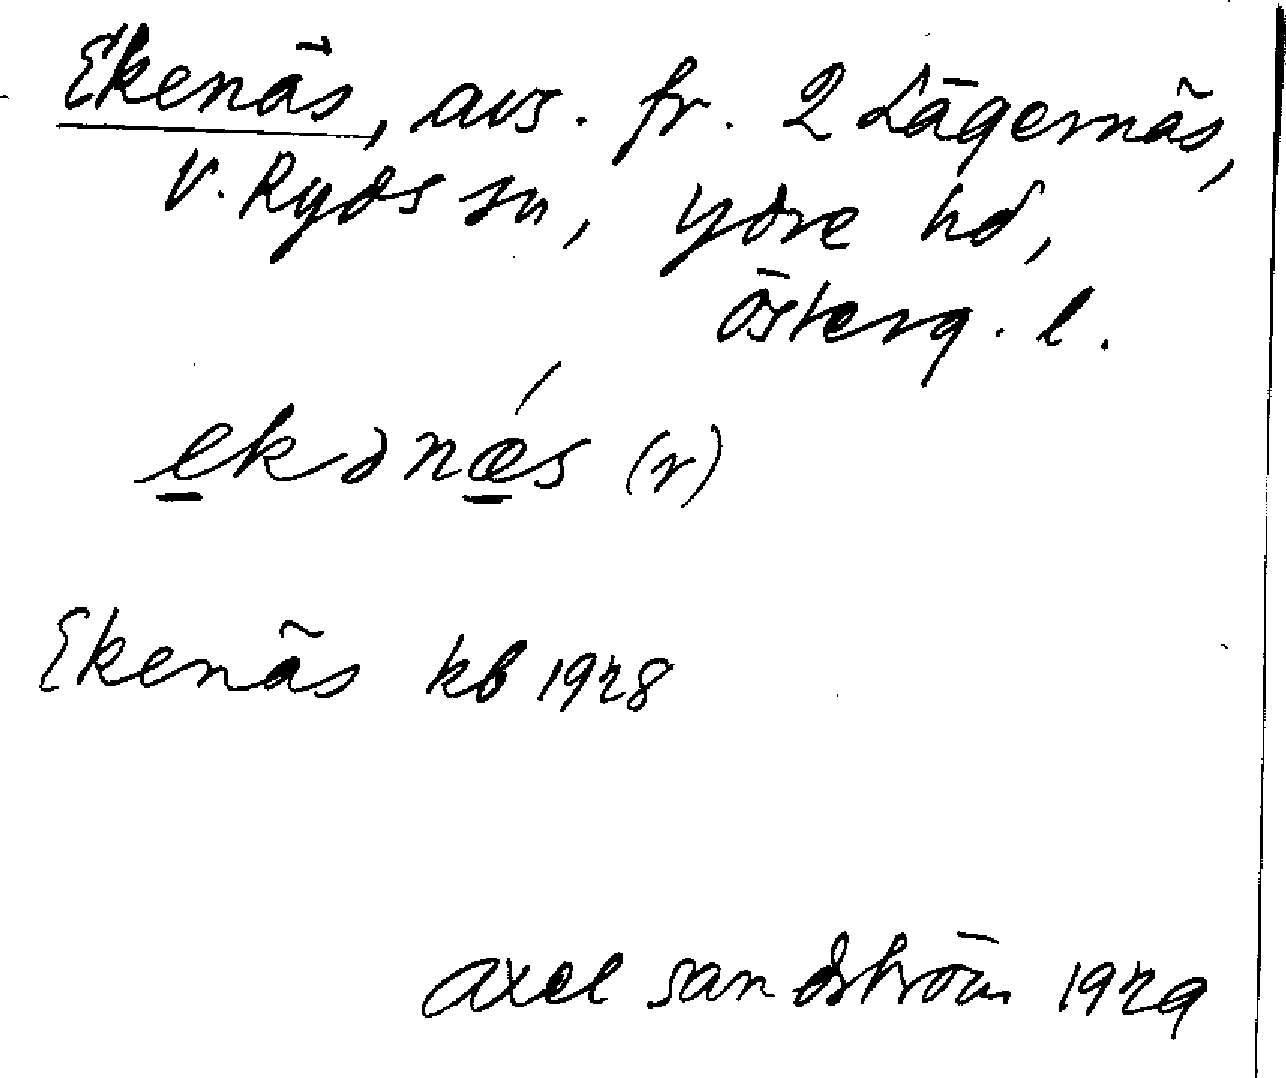 Ekenäs, avs. fr. 2 Lägernäs,
V. Ryds sn, Ydre hd,
Österg. l.
ekənǽs (r)
Ekenäs kb 1928
Axel Sandström 1929